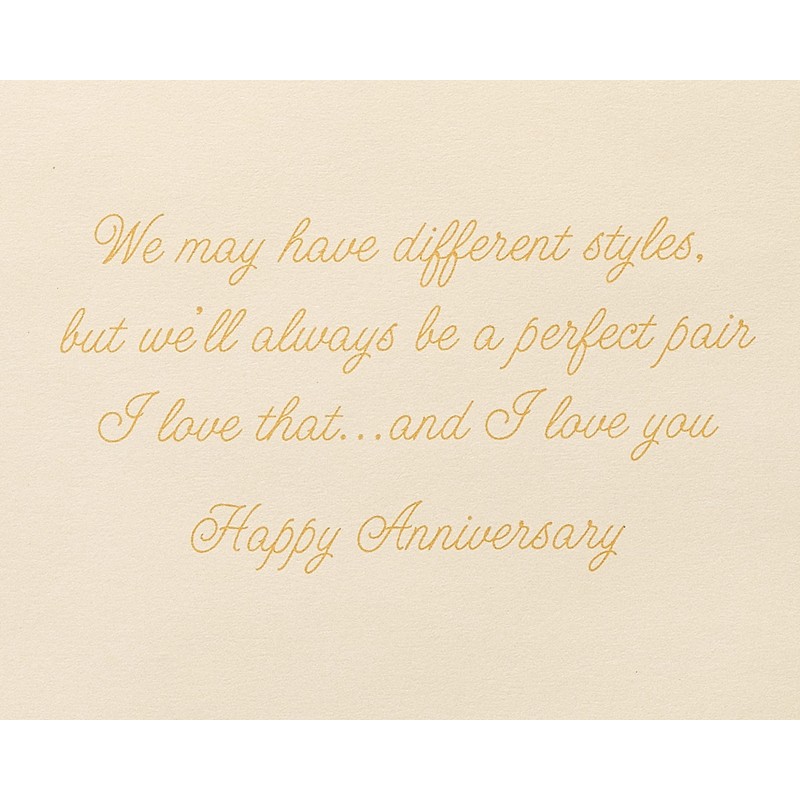 We may have different styles,
but we'll always be a perfect pair
I love that...and I love you
Happy Anniversary